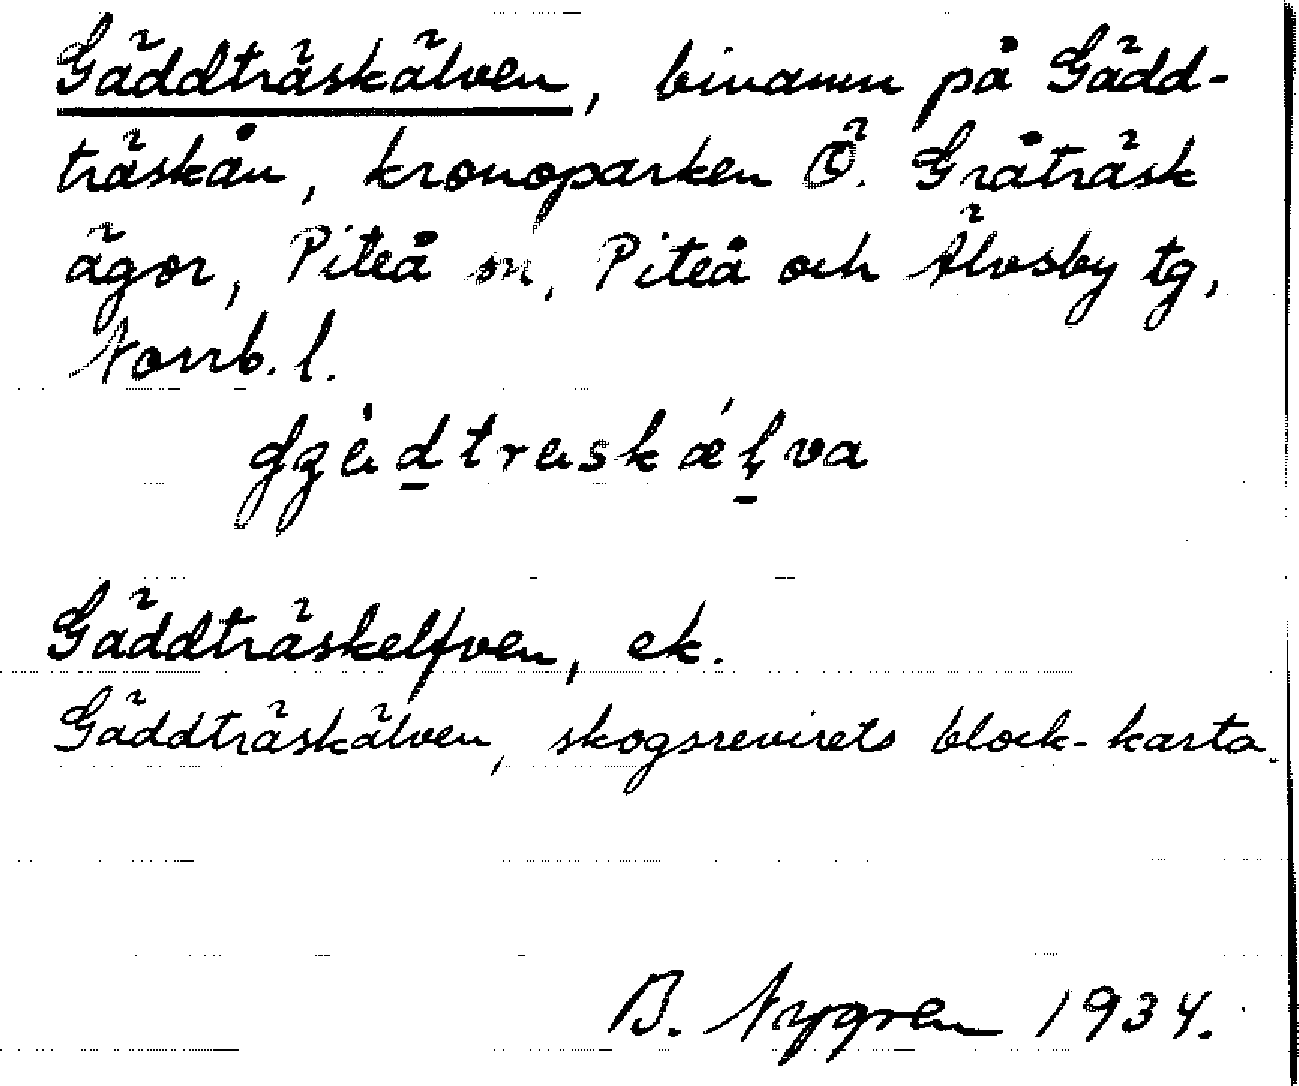 Gäddträskälven, binamn på Gädd-
träskån, kronoparken Ö. Gråträsk
ägor, Piteå sn, Piteå och Älvsby tg,
Norrb. l.
Gäddträskelfven, ek.
Gäddträskälven, skogsrevirets block-karta.
B. Nygren 1934.